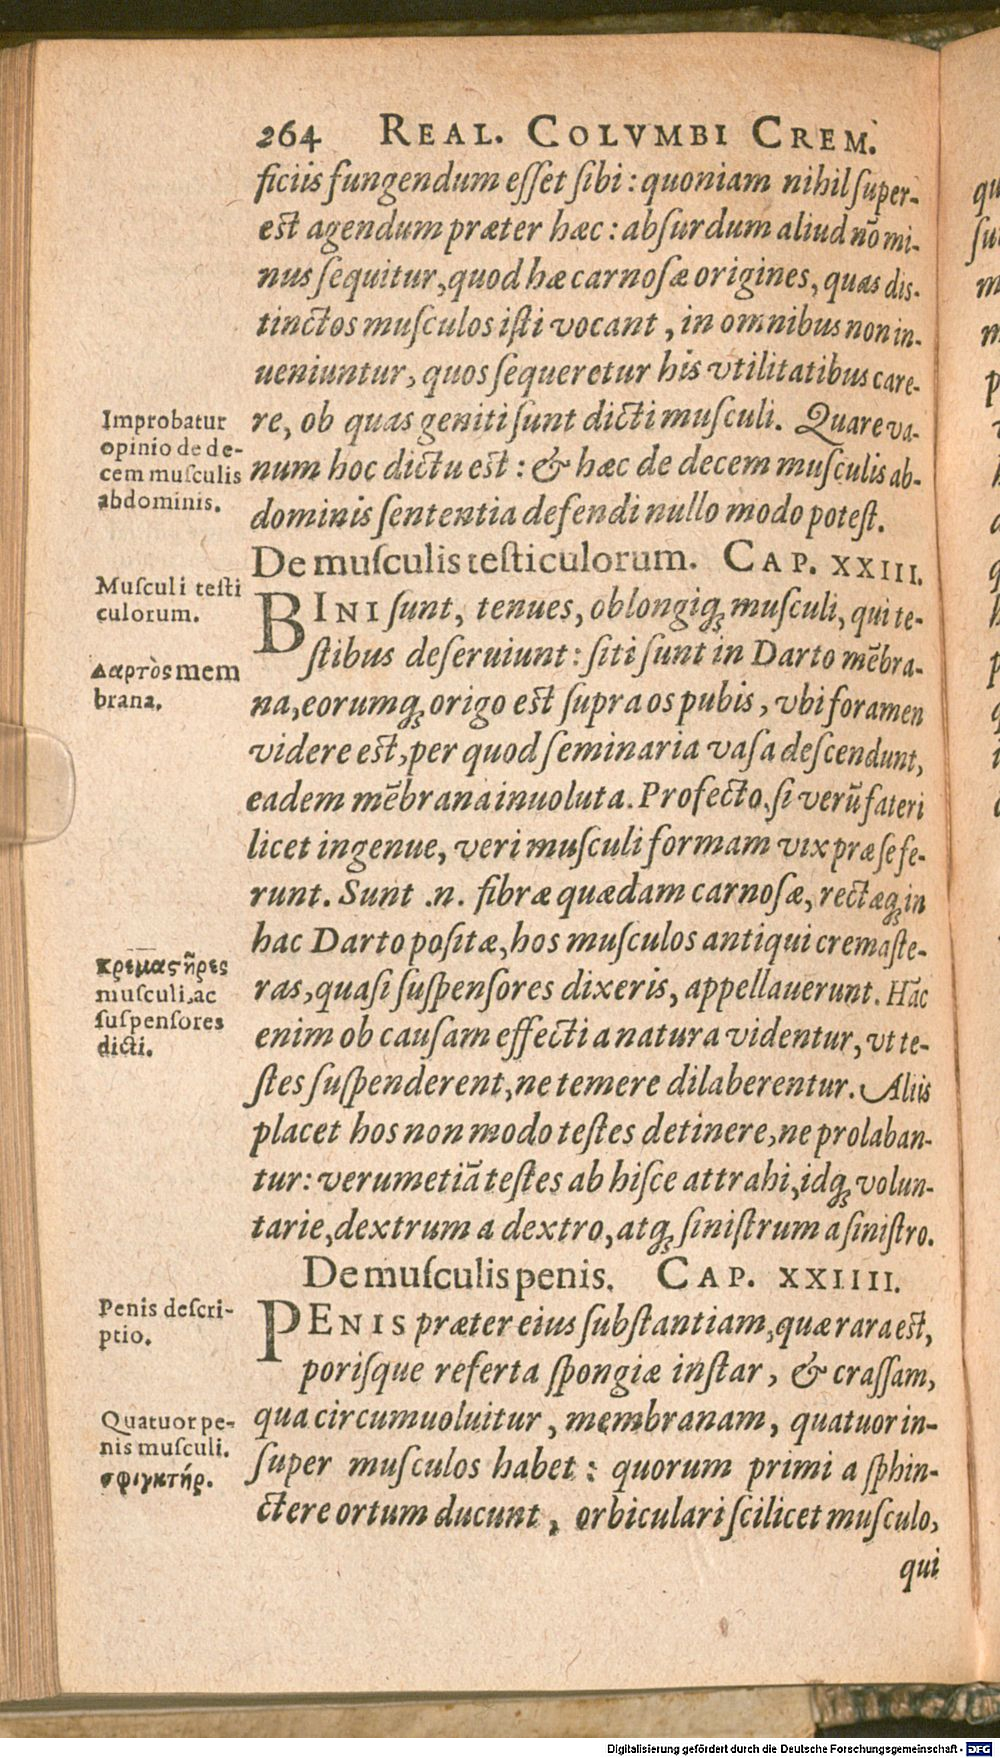 264 REAL. COLVMBI CREM.
ficiis fungendum esset sibi: quoniam nihil super-
est agendum præter hæc: absurdum aliud nõ mi-
nus sequitur, quod hæ carnosæ origines, quas dis-
tinctos musculos isti vocant, in omnibus non in-
ueniuntur, quos sequeretur his vtilitatibus care-
re, ob quas geniti sunt dicti musculi. Quare va-
num hoc dictu est: & hæc de decem musculis ab-
dominis sententia defendi nullo modo potest.
Improbatur
opinio de de-
cem musculis
abdominis.
De musculis testiculorum. CAP. XXIII.
Musculi testi
culorum.
BINI sunt, tenues, oblongiq; musculi, qui te-
stibus deseruiunt: siti sunt in Darto mẽbra-
na, eorumq; origo est supra os pubis, vbi foramen
videre est, per quod seminaria vasa descendunt,
eadem mẽbrana inuoluta. Profecto, si verũ fateri
licet ingenue, veri musculi formam vix præ se fe-
runt. Sunt .n. fibræ quædam carnosæ, rectæq; in
hac Darto positæ, hos musculos antiqui cremaste-
ras, quasi suspensores dixeris, appellauerunt. Hãc
enim ob causam effecti a natura videntur, vt te-
stes suspenderent, ne temere dilaberentur. Aliis
placet hos non modo testes detinere, ne prolaban-
tur: verumetiã testes ab hisce attrahi, idq; volun-
tarie, dextrum a dextro, atq; sinistrum a sinistro.
Δαρτὸς mem
brana.
κρεμαστῆρες
musculi, ac
suspensores
dicti.
De musculis penis. CAP. XXIIII.
Penis descri-
ptio.
PENIS præter eius substantiam, quæ rara est,
porisque referta spongiæ instar, & crassam,
qua circumuoluitur, membranam, quatuor in-
super musculos habet: quorum primi a sphin-
ctere ortum ducunt, orbiculari scilicet musculo,
Quatuor pe-
nis musculi.
σφιγκτήρ.
qui
Digitalisierung gefördert durch die Deutsche Forschungsgemeinschaft - DFG